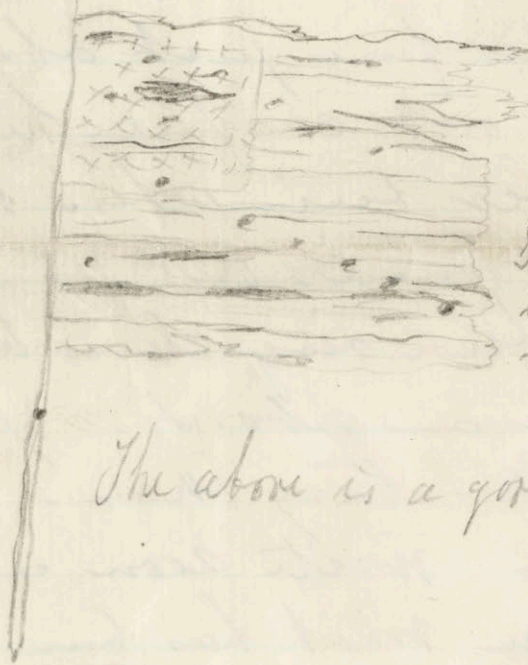 The above is a